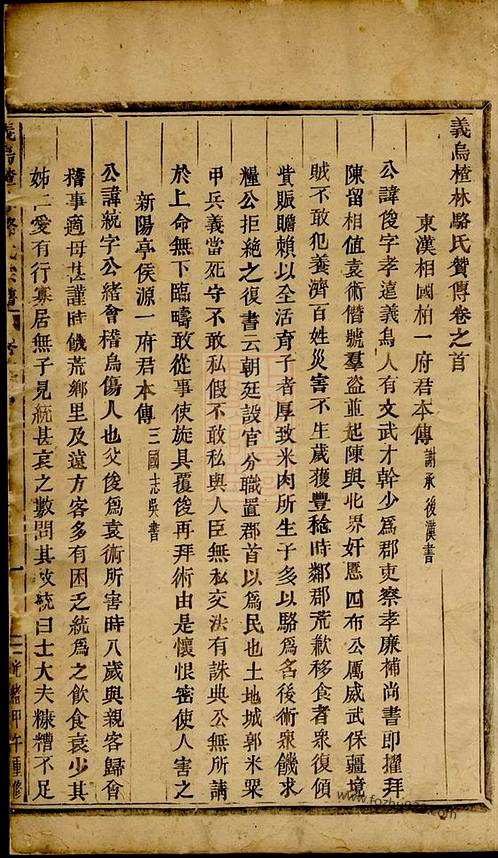 義烏楂林駱氏贊傳卷之首
東漢相國柏一府君本傳 謝承後漢書
公諱俊字孝遠義烏人有文武才幹少爲郡吏察孝廉補尚書郎擢拜
陳留相值袁術僭號羣盜並起陳與北界奸慝四布公厲威武保疆境
賊不敢犯養濟百姓災害不生歲獲豐稔時鄰郡荒歉移食者衆復傾
貲賑贍賴以全活育子者厚致米肉所生子多以駱爲名後術衆饑求
糧公拒絶之復書云朝廷設官分職置郡首以爲民也土地城郭米粟
甲兵義當死守不敢私假不敢私與人臣無私交法有誅典公無所請
於上命無下臨疇敢從事使旋具覆俊再拜術由是懷恨密使人害之
新陽亭侯源一府君本傳 三國志吳書
公諱統字公緒會稽烏傷人也父俊爲袁術所害時八歲與親客歸會
稽事適母甚謹時饑荒鄉里及遠方客多有困乏統爲之飲食衰少其
姊仁愛有行寡居無子見統甚哀之數問其故統曰士大夫糠糟不足
義烏楂
光緒甲午重修
www.fozhu920.com